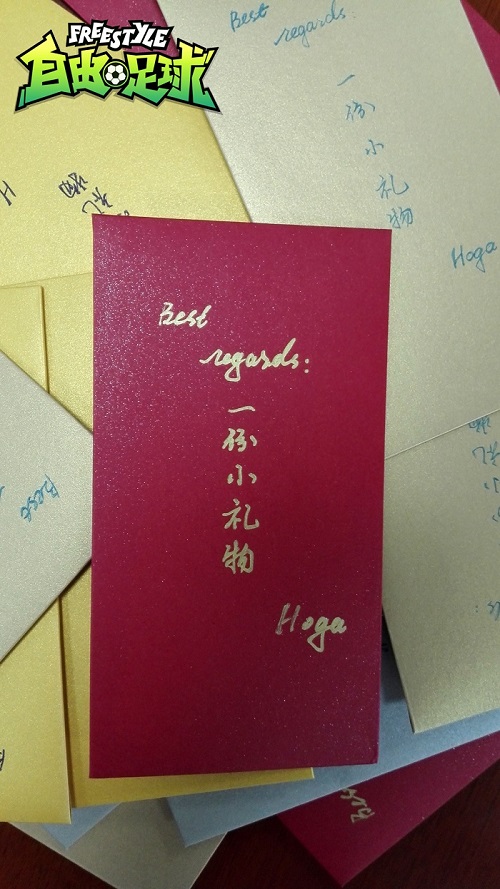 FREESTYLE
自由足球
Best
regards:
一份小礼物
Hoga
Best
regards:
一份小礼物
Hoga
礼物
H
Best